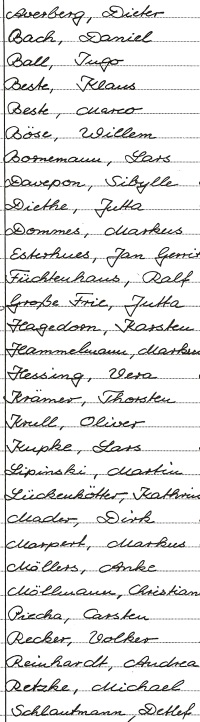 Averberg, Dieter
Bach, Daniel
Ball, Ingo
Beste, Klaus
Beste, Marco
Böse, Willem
Bornemann, Lars
Davepon, Sibylle
Diethe, Jutta
Dommes, Markus
Esterhues, Jan Gerrit
Füchtenhans, Ralf
Große Frie, Jutta
Hagedorn, Karsten
Hammelmann, Markus
Hessing, Vera
Krämer, Thorsten
Krull, Oliver
Kupke, Lars
Lipinski, Martin
Lückenkötter, Kathrin
Mader, Dirk
Marpert, Markus
Möllers, Anke
Möllmann, Christian
Piecha, Carsten
Recker, Volker
Reinhardt, Andrea
Retzke, Michael
Schlautmann, Detlef